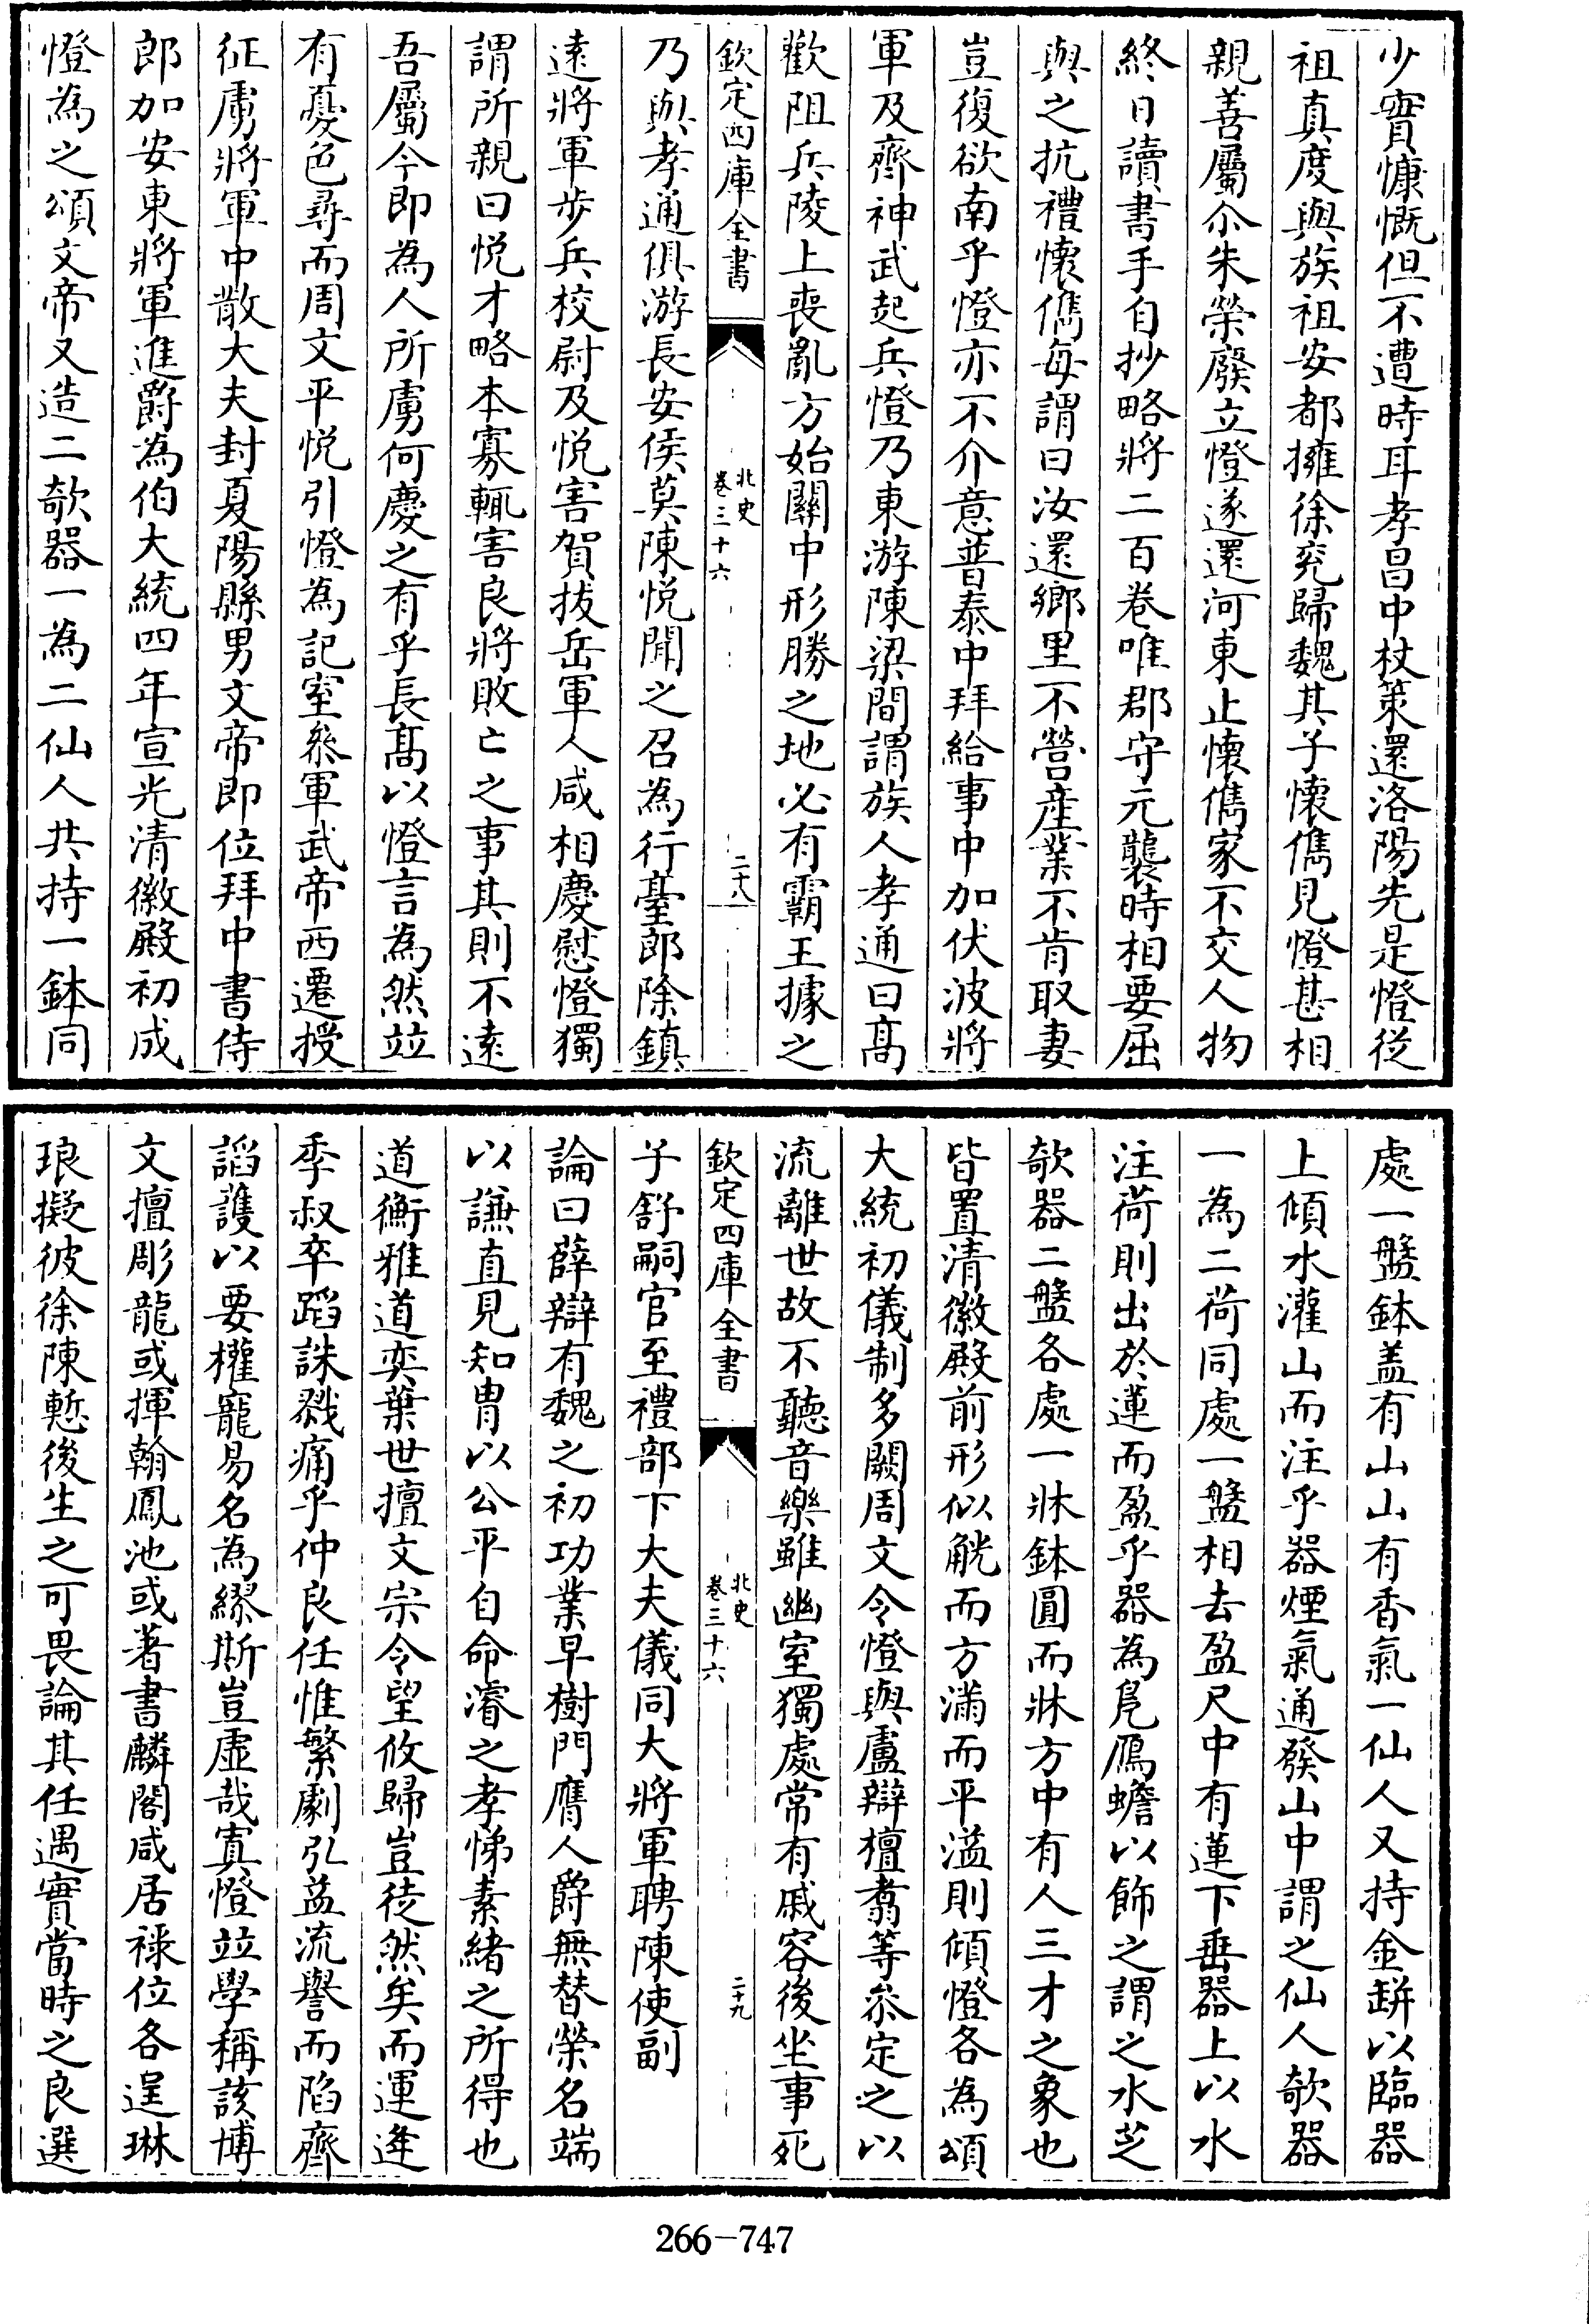 少實慷慨但不遭時耳孝昌中杖策還洛陽先是憕從
祖真度與族祖安都擁徐兖歸魏其子懷儁見憕甚相
親善屬尒朱榮廢立憕遂還河東止懷儁家不交人物
終日讀書手自抄略將二百卷唯郡守元襲時相要屈
與之抗禮懷儁每謂曰汝還鄉里不營産業不肯取妻
豈復欲南乎憕亦不介意普泰中拜給事中加伏波將
軍及齊神武起兵憕乃東游陳梁間謂族人孝通曰髙
歡阻兵陵上喪亂方始關中形勝之地必有霸王據之
欽定四庫全書
北史
卷三十六
二十八
乃與孝通俱游長安侯莫陳悦聞之召為行臺郎除鎮
逺將軍步兵校尉及悦害賀拔岳軍人咸相慶慰憕獨
謂所親曰悦才略本寡輒害良將敗亡之事其則不逺
吾屬今即為人所虜何慶之有乎長髙以憕言為然竝
有憂色尋而周文平悦引憕為記室叅軍武帝西遷授
征虜將軍中散大夫封夏陽縣男文帝即位拜中書侍
郎加安東將軍進爵為伯大統四年宣光清徽殿初成
憕為之頌文帝又造二欹器一為二仙人共持一鉢同
處一盤鉢盖有山山有香氣一仙人又持金缾以臨器
上傾水灌山而注乎器煙氣通發山中謂之仙人欹器
一為二荷同處一盤相去盈尺中有蓮下垂器上以水
注荷則出於蓮而盈乎器為鳬鴈蟾以飾之謂之水芝
欹器二盤各處一牀鉢圓而牀方中有人三才之象也
皆置清徽殿前形似觥而方滿而平溢則傾憕各為頌
大統初儀制多闕周文令憕與盧辯檀翥等叅定之以
流離世故不聽音樂雖幽室獨處常有戚容後坐事死
欽定四庫全書
北史
卷三十六
二十九
子舒嗣官至禮部下大夫儀同大將軍聘陳使副
論曰薛辯有魏之初功業早樹門膺人爵無替榮名端
以謙直見知胄以公平自命濬之孝悌素緒之所得也
道衡雅道奕葉世擅文宗令望攸歸豈徒然矣而運逄
季叔卒蹈誅戮痛乎仲良任惟繁劇弘益流譽而陷齊
謟䕶以要權寵易名為繆斯豈虚哉寘憕竝學稱該博
文擅彫龍或揮翰鳳池或著書麟閣咸居禄位各逞琳
琅擬彼徐陳慙後生之可畏論其任遇實當時之良選
266-747